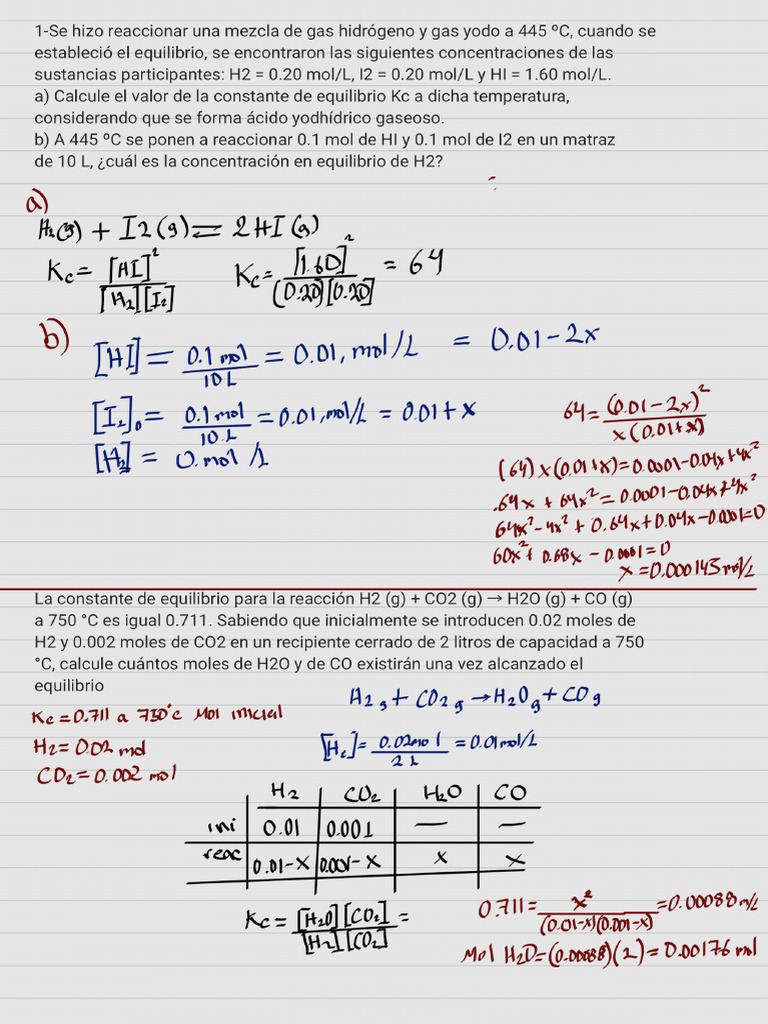 1-Se hizo reaccionar una mezcla de gas hidrógeno y gas yodo a 445 ºC, cuando se
estableció el equilibrio, se encontraron las siguientes concentraciones de las
sustancias participantes: H2 = 0.20 mol/L, I2 = 0.20 mol/L y HI = 1.60 mol/L.
a) Calcule el valor de la constante de equilibrio Kc a dicha temperatura,
considerando que se forma ácido yodhídrico gaseoso.
b) A 445 ºC se ponen a reaccionar 0.1 mol de HI y 0.1 mol de I2 en un matraz
de 10 L, ¿cuál es la concentración en equilibrio de H2?
a)
H2(g) + I2(g) ⇌ 2HI(g)
Kc = [HI]²/[H2][I2] Kc = [1.60]²/(0.20)[0.20] = 64
b)
[HI] = 0.1 mol/10L = 0.01, mol/L = 0.01 - 2x
[I2]0 = 0.1 mol/10L = 0.01, mol/L = 0.01 + x
[H2] = 0.mol/L
64 = (0.01 - 2x)²/x(0.01+x)
(64)x(0.01+x) = 0.0001 - 0.04x + 4x²
.64x + 64x² = 0.0001 - 0.04x + 4x²
64x² - 4x² + 0.64x + 0.04x - 0.0001 = 0
60x² + 0.68x - 0.0001 = 0
x = 0.000145 mol/L
La constante de equilibrio para la reacción H2 (g) + CO2 (g) → H2O (g) + CO (g)
a 750 °C es igual 0.711. Sabiendo que inicialmente se introducen 0.02 moles de
H2 y 0.002 moles de CO2 en un recipiente cerrado de 2 litros de capacidad a 750
°C, calcule cuántos moles de H2O y de CO existirán una vez alcanzado el
equilibrio
H2 g + CO2 g → H2O g + CO g
Kc = 0.711 a 750°c Mol inicial
H2 = 0.02 mol
CO2 = 0.002 mol
[H2] = 0.02mol/2L = 0.01 mol/L
H2 CO2 H2O CO
ini 0.01 0.001 — —
reac 0.01-x 0.001-x x x
Kc = [H2O][CO2]/[H2][CO2] =
0.711 = x²/(0.01-x)(0.001-x) = 0.00088 m/L
Mol H2O = (0.00088)(2) = 0.00176 mol